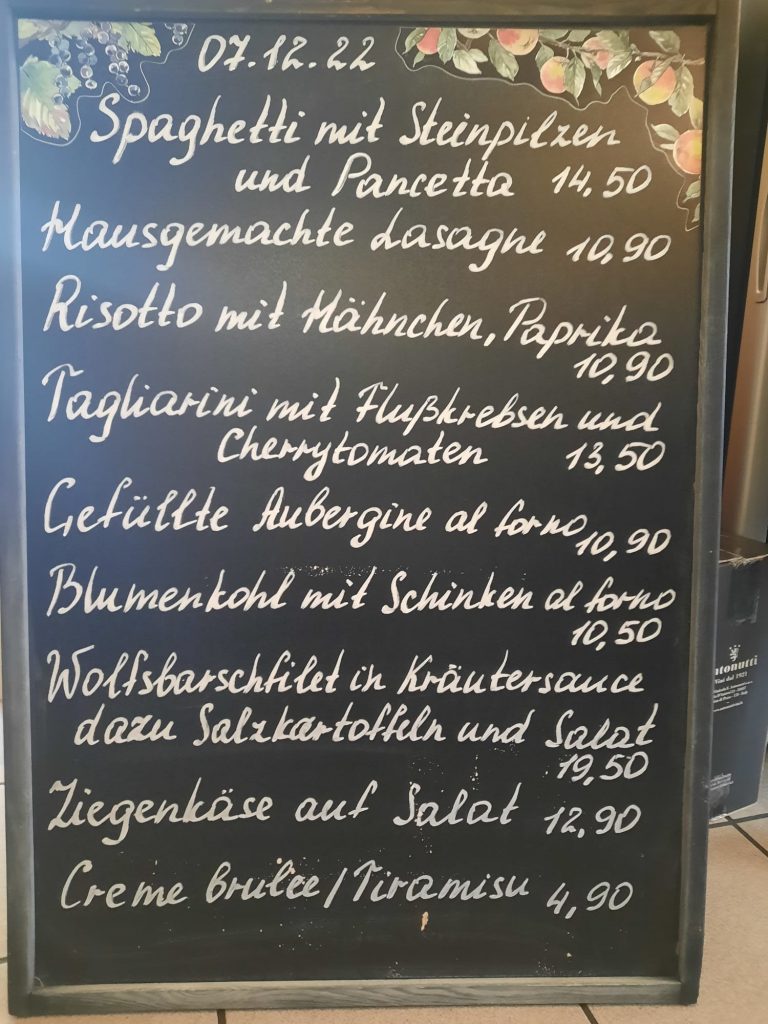 07.12.22
Spaghetti mit Steinpilzen
und Pancetta 14,50
Hausgemachte Lasagne 10,90
Risotto mit Hähnchen, Paprika
10,90
Tagliarini mit Flußkrebsen und
Cherrytomaten 13,50
Gefüllte Aubergine al forno
10,90
Blumenkohl mit Schinken al forno
10,50
Wolfsbarschfilet in Kräutersauce
dazu Salzkartoffeln und Salat
19,50
Ziegenkäse auf Salat 12,90
Creme brulee/Tiramisu 4,90
ntonutti
Vini dal 1921